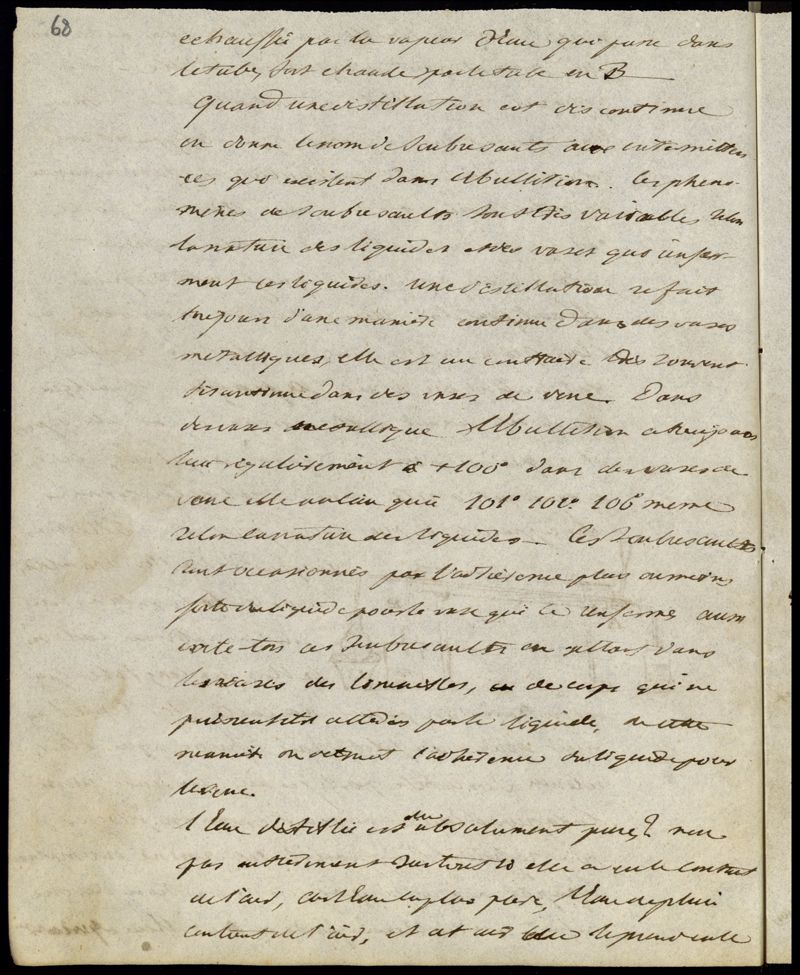 68
echauffée par la vapeur d'Eau qui passe dans
le tube, sort chaude par le tube en B
Quand une distillation est discontinue
on donne le nom de soubresauts aux intermitten
ces qui existent dans l'Ebullition. Ces phéno-
mènes de soubresaults sont très variables selon
la nature des liquides et des vases qui renfer-
ment ces liquides. une distillation se fait
toujours d'une manière continue dans des vases
métalliques, elle est au contraire très souvent
discontinue dans des vases de verre. Dans
des vases métallique l'Ebullition a toujours
lieu régulièrement à +100° dans des vases de
verre elle n'a lieu qu'à 101° 102° 106° meme
selon la nature des liquides. Ces soubresaults
sont occasionnés par l'adhérence plus ou moins
forte du liquide pour le vase qui le renferme, aussi
évite-t-on ces soubresaults en jettant dans
les vases des limailles, ou de corps qui ne
puissent être attaqués par le liquide, de cette
manière on détruit l'adhérence du liquide pour
le verre.
l'Eau distillée est elle absolument pure? non
pas entièrement surtout si elle a eu le contact
de l'air, car l'Eau la plus pure, l'Eau de pluie
contient de l'air, et cet air elle le prend